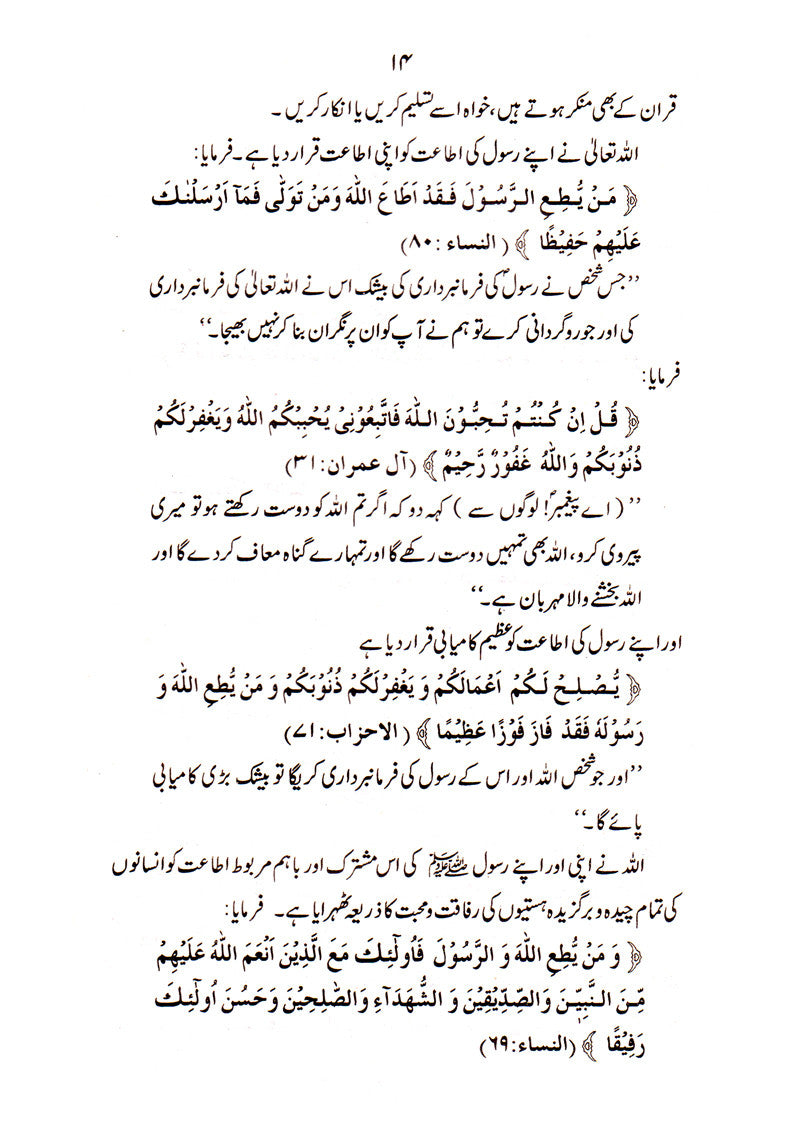 ۱۴
قران کے بھی منکر ہوتے ہیں، خواہ اسے تسلیم کریں یا انکار کریں ۔
اللہ تعالیٰ نے اپنے رسول کی اطاعت کو اپنی اطاعت قرار دیا ہے۔ فرمایا:
﴿ مَنْ یُّطِعِ الرَّسُوْلَ فَقَدْ اَطَاعَ اللّٰہَ وَمَنْ تَوَلّٰی فَمَآ اَرْسَلْنٰکَ
عَلَیْھِمْ حَفِیْظًا ﴾ ( النساء :۸۰)
’’جس شخص نے رسولؐ کی فرمانبرداری کی بیشک اس نے اللہ تعالیٰ کی فرمانبرداری
کی اور جو روگردانی کرے تو ہم نے آپ کو ان پر نگران بنا کر نہیں بھیجا۔‘‘
فرمایا:
﴿ قُلْ اِنْ کُنْتُمْ تُحِبُّوْنَ اللّٰہَ فَاتَّبِعُوْنِیْ یُحْبِبْکُمُ اللّٰہُ وَیَغْفِرْلَکُمْ
ذُنُوْبَکُمْ وَاللّٰہُ غَفُوْرٌ رَّحِیْمٌ ﴾ (آل عمران: ۳۱)
’’ ( اے پیغمبرؐ! لوگوں سے ) کہہ دو کہ اگر تم اللہ کو دوست رکھتے ہو تو میری
پیروی کرو، اللہ بھی تمہیں دوست رکھے گا اور تمہارے گناہ معاف کر دے گا اور
اللہ بخشنے والا مہربان ہے۔‘‘
اور اپنے رسول کی اطاعت کو عظیم کامیابی قرار دیا ہے
﴿ یُّصْلِحْ لَکُمْ اَعْمَالَکُمْ وَ یَغْفِرْلَکُمْ ذُنُوْبَکُمْ وَ مَنْ یُّطِعِ اللّٰہَ وَ
رَسُوْلَہٗ فَقَدْ فَازَ فَوْزًا عَظِیْمًا ﴾ ( الاحزاب: ۷۱)
’’اور جو شخص اللہ اور اس کے رسول کی فرمانبرداری کریگا تو بیشک بڑی کامیابی
پائے گا۔‘‘
اللہ نے اپنی اور اپنے رسول ﷺ کی اس مشترک اور باہم مربوط اطاعت کو انسانوں
کی تمام چیدہ و برگزیدہ ہستیوں کی رفاقت و محبت کا ذریعہ ٹھہرایا ہے۔ فرمایا:
﴿ وَ مَنْ یُّطِعِ اللّٰہَ وَ الرَّسُوْلَ فَاُولٰٓئِکَ مَعَ الَّذِیْنَ اَنْعَمَ اللّٰہُ عَلَیْھِمْ
مِّنَ النَّبِیّٖنَ وَالصِّدِّیْقِیْنَ وَ الشُّھَدَآءِ وَالصّٰلِحِیْنَ وَحَسُنَ اُولٰٓئِکَ
رَفِیْقًا ﴾ (النساء:۶۹)